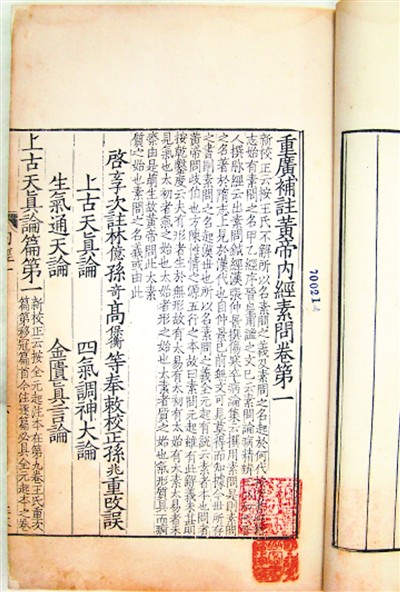 重廣補註黃帝內經素問卷第一
新校正云按王氏不解所以名素問之義及素問之名起於何代
志始有素問之名甲乙經序晉皇甫謐之文已云素問論病精辨
人撰脉經云出素問鍼經漢張仲景撰傷寒卒病論集云撰用素問是則素問
之名著於隋志上見於漢代也自仲景已前無文可見莫得而知據今世所存
之書則素問之名起漢世也所以名素問之義全元起有說云素者本也問者
黃帝問岐伯也方陳性情之源五行之本故曰素問元起雖有此解義未甚明
按乾鑿度云夫有形者生於無形故有太易有太初有太始有太素太易者未
見氣也太初者氣之始也太始者形之始也太素者質之始也氣形質具而痾
瘵由是萌生故黃帝問此太素
質之始也素問之名義或由此
啓玄子次註林億孫奇高保衡等奉敕校正孫兆重改誤
上古天真論 四氣調神大論
生氣通天論 金匱真言論
上古天真論篇第一
新校正云按全元起注本在第九卷王氏重次
篇第移冠篇首今注逐篇必具全元起本之卷
70021